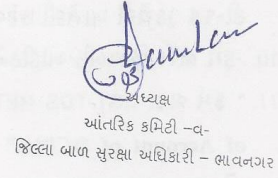 અધ્યક્ષ
આંતરિક કમિટી –વ-
જિલ્લા બાળ સુરક્ષા અધિકારી – ભાવનગર